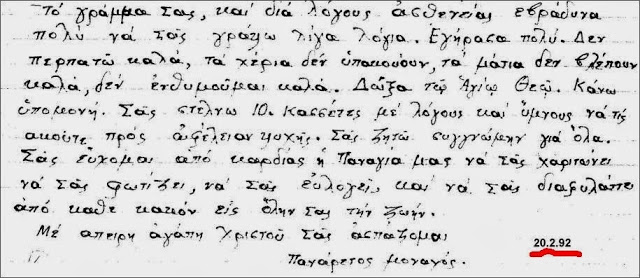 Τό γράμμα Σας, καί διά λόγους ἀσθενείας εβράδυνα
πολύ νά Σᾶς γράψω λίγα λόγια. Εγήρασα πολύ. Δεν
περπατῶ καλά, τά χέρια δέν ὑπακούουν, τά μάτια δεν βλέπουν
καλά, δέν ἐνθυμοῦμαι καλά. Δόξα τῷ Ἁγίῳ Θεῷ. Κάνω
ὑπομονή. Σᾶς στέλνω 10. κασσέτες μέ λόγους καί ὕμνους νά τίς
ακούτε πρός ὠφέλειαν ψυχῆς. Σᾶς ζητῶ συγγνώμην γιά ὅλα.
Σᾶς εὔχομαι από καρδίας ἡ Παναγία μας νά Σᾶς χαριτώνει
νά Σᾶς φωτίζει, νά Σᾶς εὐλογεῖ, καί νά Σᾶς διαφυλάττει
ἀπό κάθε κακόν εἰς ὅλην Σας τήν ζωήν.
Μέ απειρη ἀγάπη Χριστοῦ Σᾶς ἀσπάζομαι
20.2.92
Πανάρετος μοναχός.